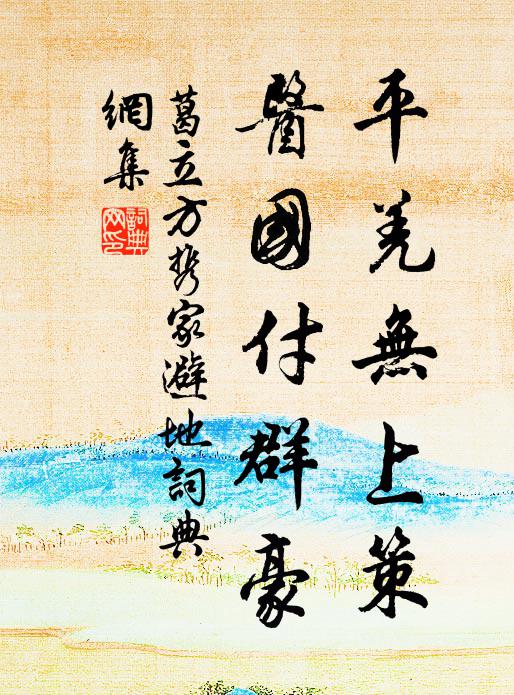 平羌無上策
醫國付群豪
葛立方携家避地詞典
網集
詞典
网印